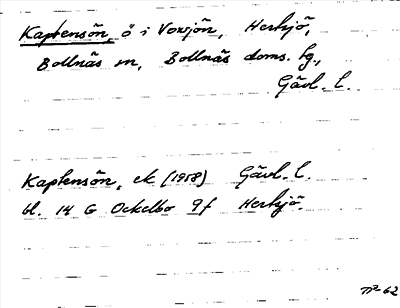 Kaptensön, ö i Voxsjön, Herkjö,
Bollnäs sn, Bollnäs doms. lg.,
Gävl. l.
Kaptensön, ek (1958) Gävl. l.
bl. 14 G Ockelbo 9f Herkjö.
62